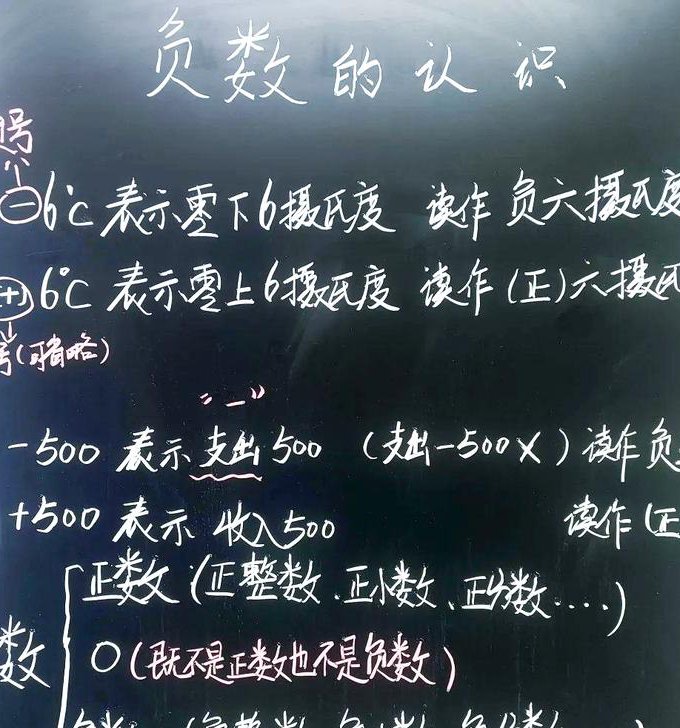 负数的认识
号
-6℃ 表示零下6摄氏度 读作 负六摄氏度
+6℃ 表示零上6摄氏度 读作(正)六摄氏
号(可省略)
“—”
-500 表示支出500 (支出-500×) 读作负
+500 表示 收入500 读作(正
正数(正整数、正小数、正分数....)
数 0(既不是正数也不是负数)